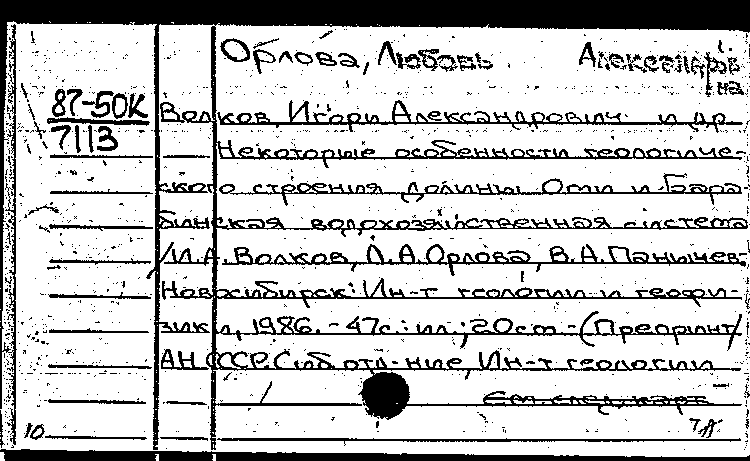 Орлова, Любовь Александров
на
87-50К Волков, Игорь Александрович и др.
7113 Некоторые особенности геологиче-
ского строения долины Оми и Бара-
бинская водохозяйственная система
/И.А. Волков, Л.А. Орлова, В.А. Панычев.-
Новосибирск: Ин-т геологии и геофи-
зики, 1986. - 47с.: ил.; 20см - (Препринт/
АН СССР. Сиб. отд-ние, Ин-т геологии
См. след. карт.
10